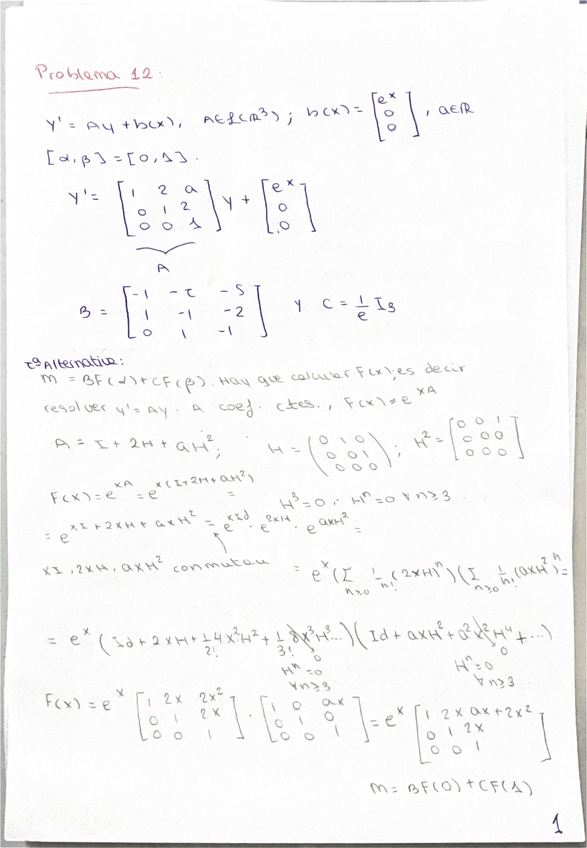 Problema 12:
y' = Ay + b(x), A∈L(R³); b(x) = [e^x 0 0], a∈R
[α,β] = [0,1].
y' = [1 2 a; 0 1 2; 0 0 1] y + [e^x 0 0]
A
B = [-1 -2 -5; 1 -1 -2; 0 1 -1] y C = 1/e I3
Tª Alternativa:
M = BF(α)+CF(β). Hay que calcular F(x); es decir
resolver y' = Ay. A coef. ctes., F(x) = e^{xA}
A = I + 2H + aH²; H = (0 1 0; 0 0 1; 0 0 0); H² = [0 0 1; 0 0 0; 0 0 0]
F(x) = e^{xA} = e^{x(I+2H+aH²)} = H³=0 ∴ H^n = 0 ∀n≥3.
= e^{xI+2xH+axH²} = e^{xId} · e^{2xH} · e^{axH²} =
xI, 2xH, axH² conmutan = e^x (Σ_{n≥0} 1/n! (2xH)^n)(Σ_{n≥0} 1/n! (axH²)^n) =
= e^x (Id + 2xH + 1/2! 4x²H² + 1/3! 8x³H³...)(Id + axH² + a²x²H⁴ + ...)
0 0
H^n=0 H^n=0
∀n≥3 ∀n≥3.
F(x) = e^x [1 2x 2x²; 0 1 2x; 0 0 1] · [1 0 ax; 0 1 0; 0 0 1] = e^x [1 2x ax+2x²; 0 1 2x; 0 0 1]
M = BF(0) + CF(1)
1